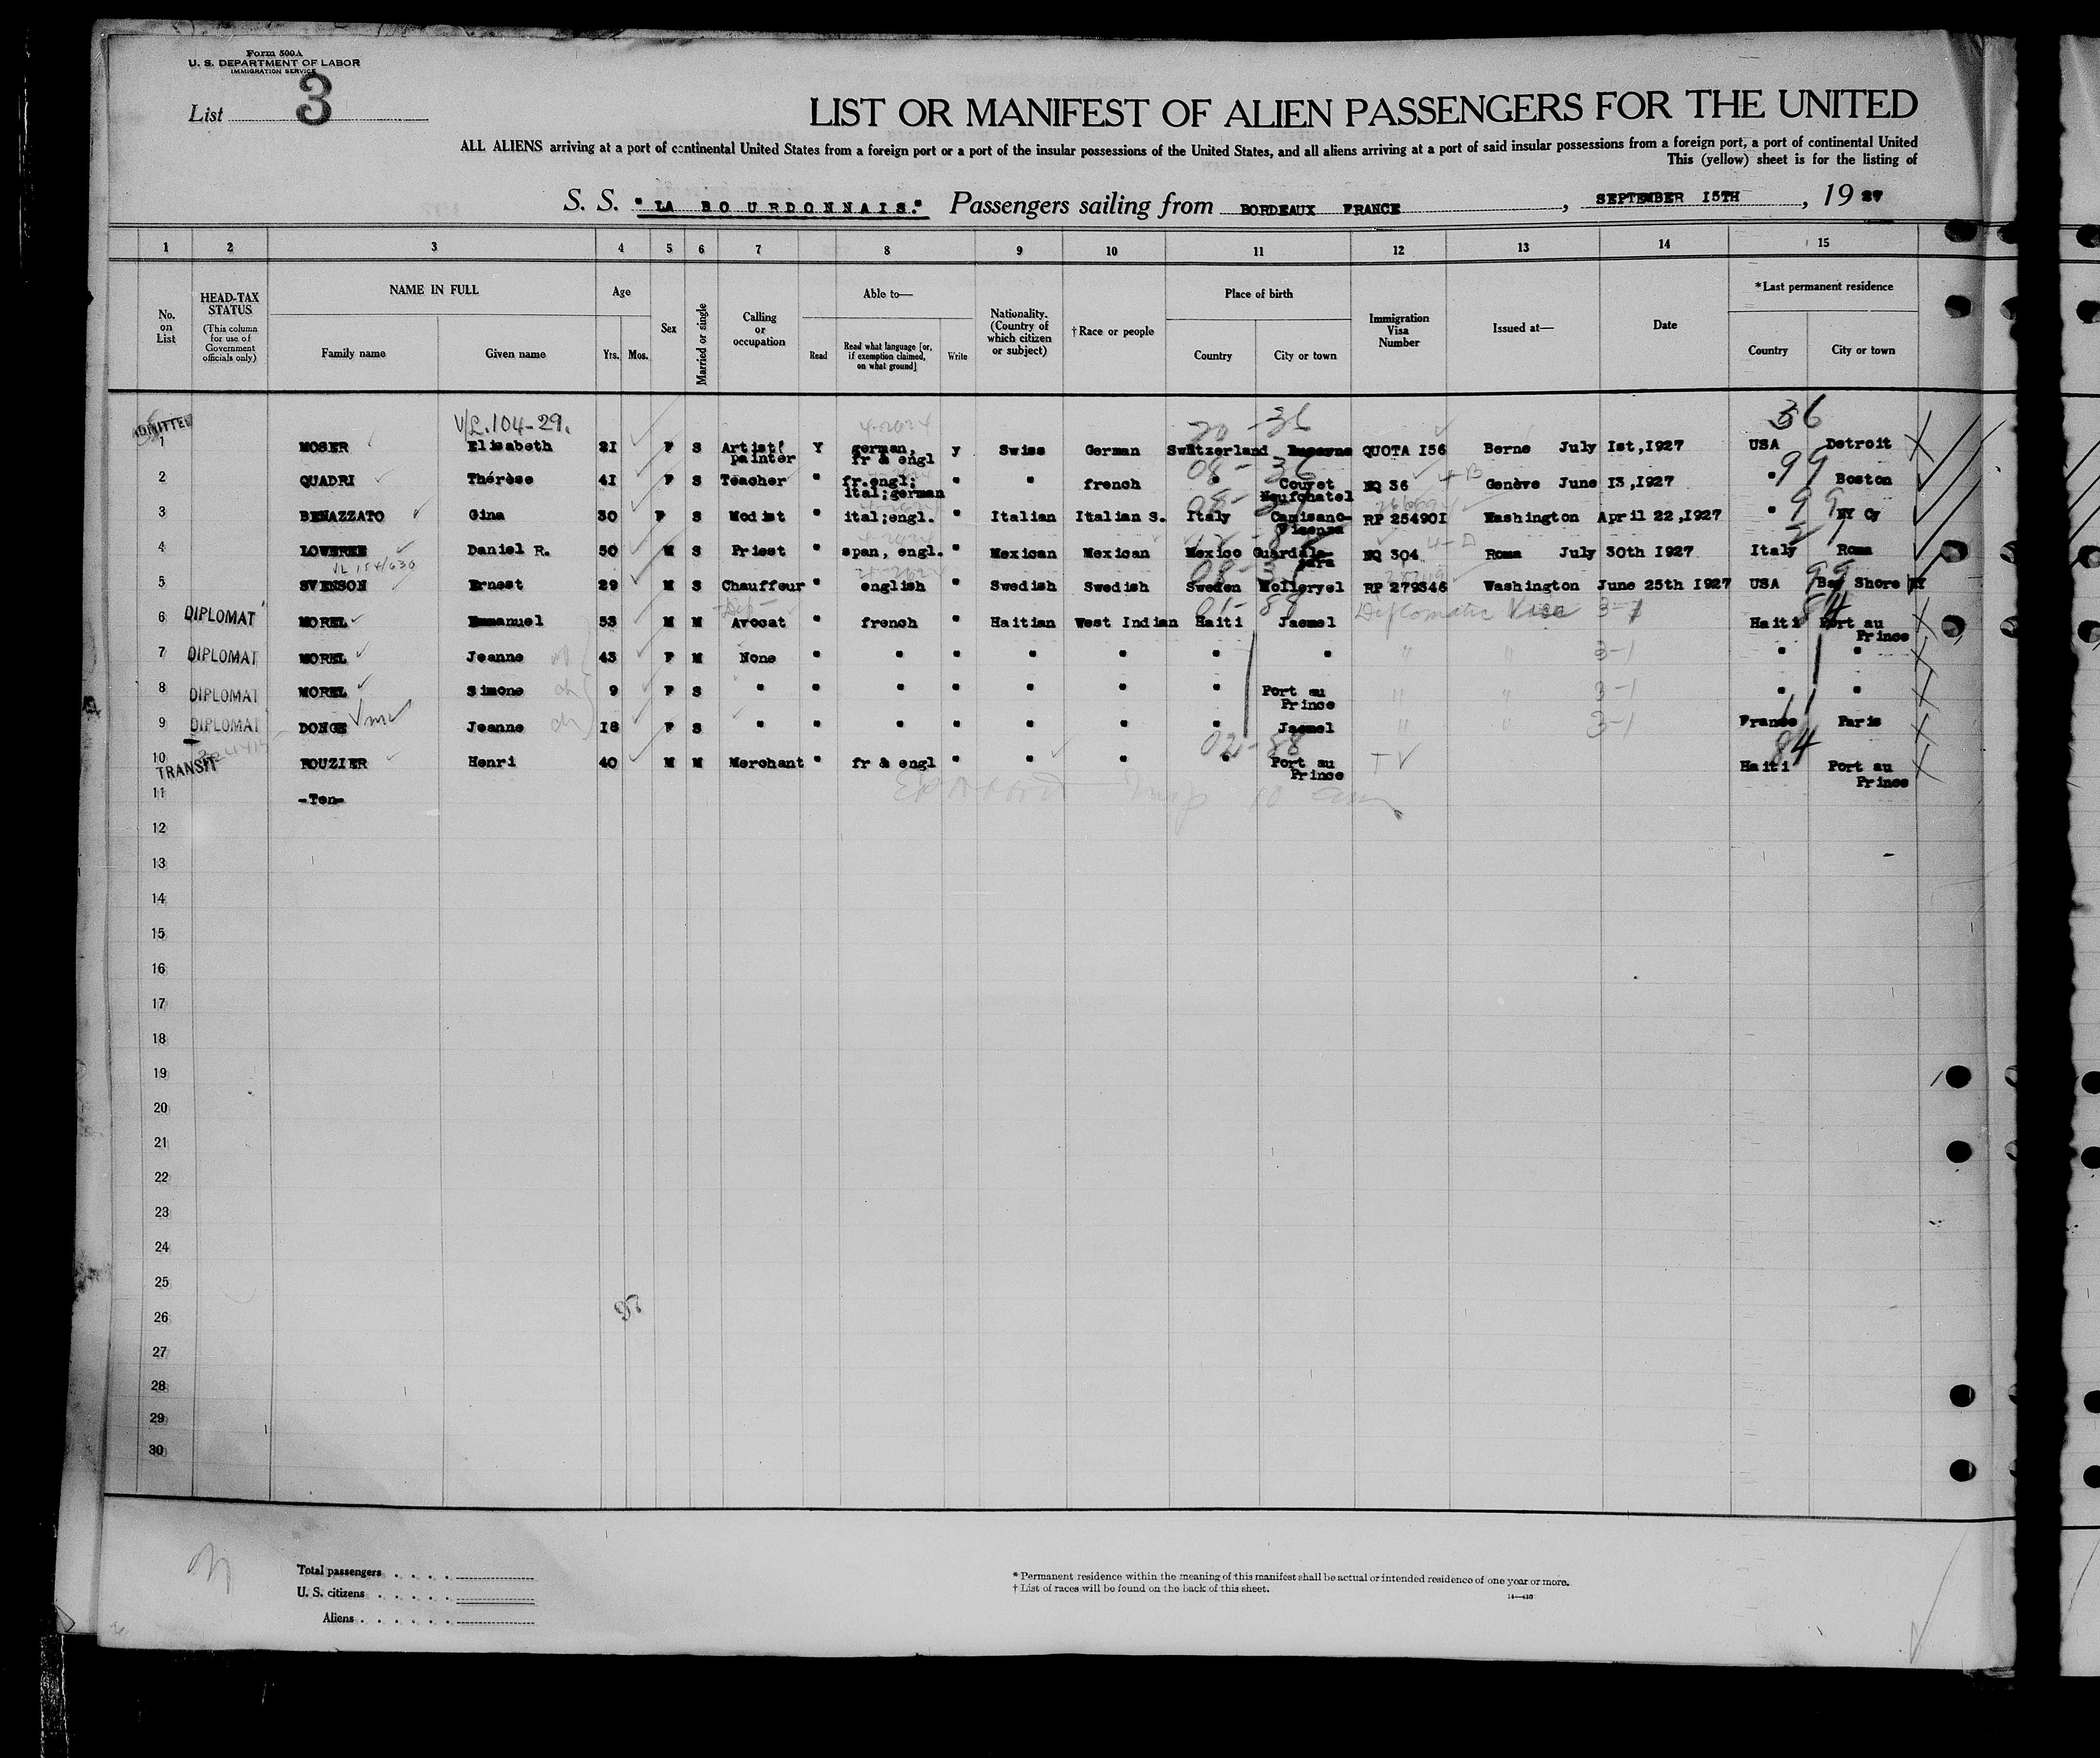 Form 500A
U. S. DEPARTMENT OF LABOR
IMMIGRATION SERVICE
List 3
LIST OR MANIFEST OF ALIEN PASSENGERS FOR THE UNITED
ALL ALIENS arriving at a port of continental United States from a foreign port or a port of the insular possessions of the United States, and all aliens arriving at a port of said insular possessions from a foreign port, a port of continental United
This (yellow) sheet is for the listing of
S. S. "LA BOURDONNAIS." Passengers sailing from BORDEAUX FRANCE, SEPTEMBER 15TH, 1927
1 2 3 4 5 6 7 8 9 10 11 12 13 14 15
No. on List
HEAD-TAX STATUS
(This column for use of Government officials only)
NAME IN FULL
Family name Given name
Age
Yrs. Mos.
Sex
Married or single
Calling or occupation
Able to—
Read
Read what language [or, if exemption claimed, on what ground]
Write
Nationality. (Country of which citizen or subject)
†Race or people
Place of birth
Country City or town
Immigration Visa Number
Issued at—
Date
*Last permanent residence
Country City or town
ADMITTED V/L.104-29. 20 -36 36
1 MOSER Elisabeth 21 F S Artist painter Y german, fr & engl y Swiss German Switzerland QUOTA I56 Berne July Ist,I927 USA Detroit
08-36 99
2 QUADRI Thérèse 4I F S Teacher " fr.engl; ital;german " " french " Couvet Neufchatel NQ 36 4-B Genève June I3,I927 " Boston
3 BENAZZATO Gina 30 F S Modist " ital;engl. " Italian Italian S. Italy Camisano- Vicenza RP 25490I Washington April 22,I927 " NY Cy
4 Daniel R. 50 M S Priest " span, engl. " Mexican Mexican Mexico Guardala- jara NQ 304 4-D Roma July 30th I927 Italy Roma
5 SVENSON Ernest 29 M S Chauffeur " english " Swedish Swedish Sweden Molleryel RP 279346 Washington June 25th I927 USA Bay Shore NY
6 DIPLOMAT MOREL Emmanuel 53 M M Avocat " french " Haitian West Indian Haiti Jacmel Diplomatic Visa 3-1 Haiti 84 Port au Prince
7 DIPLOMAT MOREL Jeanne 43 F M None " " " " " " " " " 3-1 " "
8 DIPLOMAT MOREL Simone ch 9 F S " " " " " " " Port au Prince " " 3-1 " "
9 DIPLOMAT DONGE Jeanne ch I8 F S " " " " " " " Jacmel " " 3-1 France Paris
10 TRANSIT ROUZIER Henri 40 M M Merchant " fr & engl " " " " Port au Prince TV Haiti 84 Port au Prince
11 -Ten-
12
13
14
15
16
17
18
19
20
21
22
23
24
25
26
27
28
29
30
Total passengers
U. S. citizens
Aliens
* Permanent residence within the meaning of this manifest shall be actual or intended residence of one year or more.
† List of races will be found on the back of this sheet.